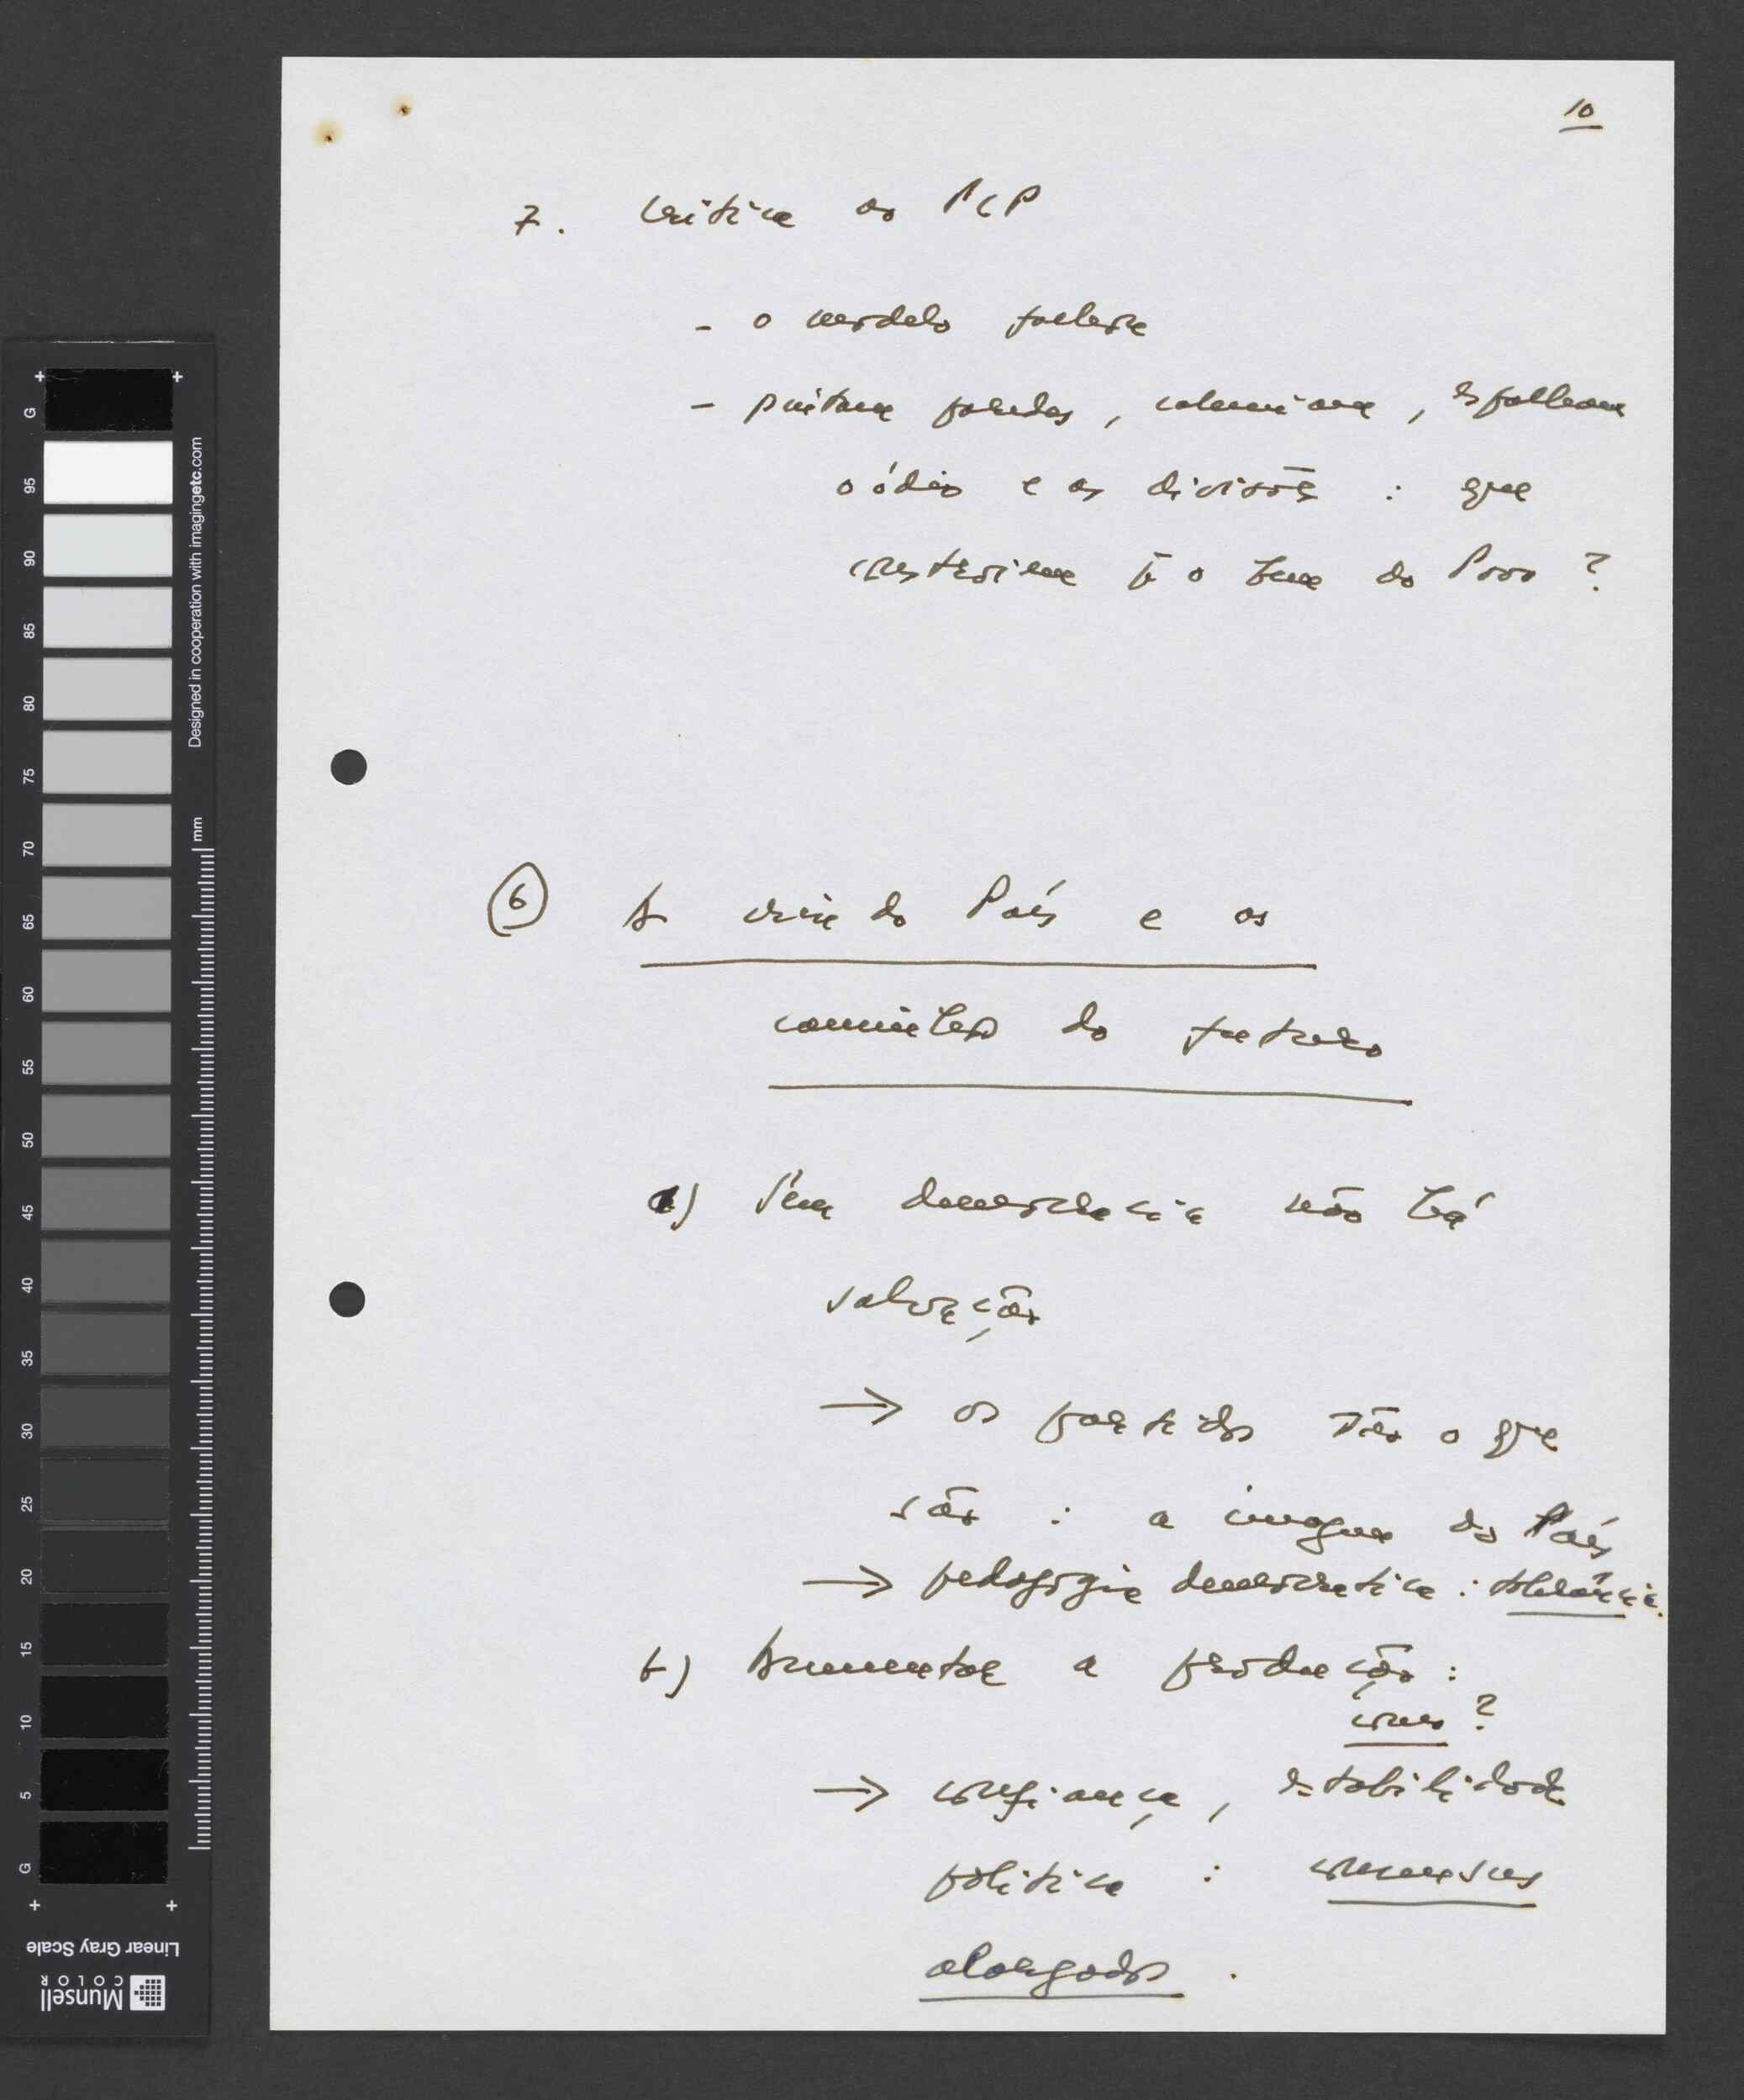 10
7. Crítica ao PCP
- o modelo falhou
- pintam paredes, caluniam, espalham
o ódio e as divisões : que
construíram p/ o bem do Povo ?
6 A crise do País e os
caminhos do futuro
a) Sem democracia não há
salvação
→ os partidos são o que
são : a imagem do País
→ pedagogia democrática : tolerância.
b) Aumentar a produção :
como ?
→ confiança, estabilidade
política : consensus
alargados .
G
95
90
85
80
75
70
65
60
55
50
45
40
35
30
25
20
15
10
5
G
Designed in cooperation with imagingetc.com
mm
Linear Gray Scale
Munsell
COLOR